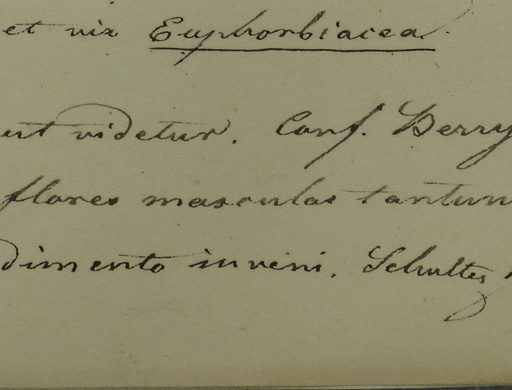 et vix Euphorbiacea.
ut videtur. Conf. Berry
flores masculos tantum
dimento inveni. Schultes